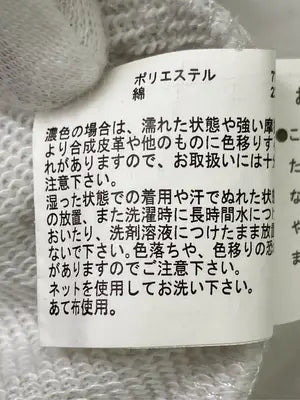 ポリエステル 7
綿 2
濃色の場合は、濡れた状態や強い摩
より合成皮革や他のものに色移りす
れがありますので、お取扱いには十
注意下さい。
湿った状態での着用や汗でぬれた状
の放置、また洗濯時に長時間水につ
おいたり、洗剤溶液につけたまま放
ないで下さい。色落ちや、色移りの恐
がありますのでご注意下さい。
ネットを使用してお洗い下さい。
あて布使用。
お
●こ
た
な
や
ま